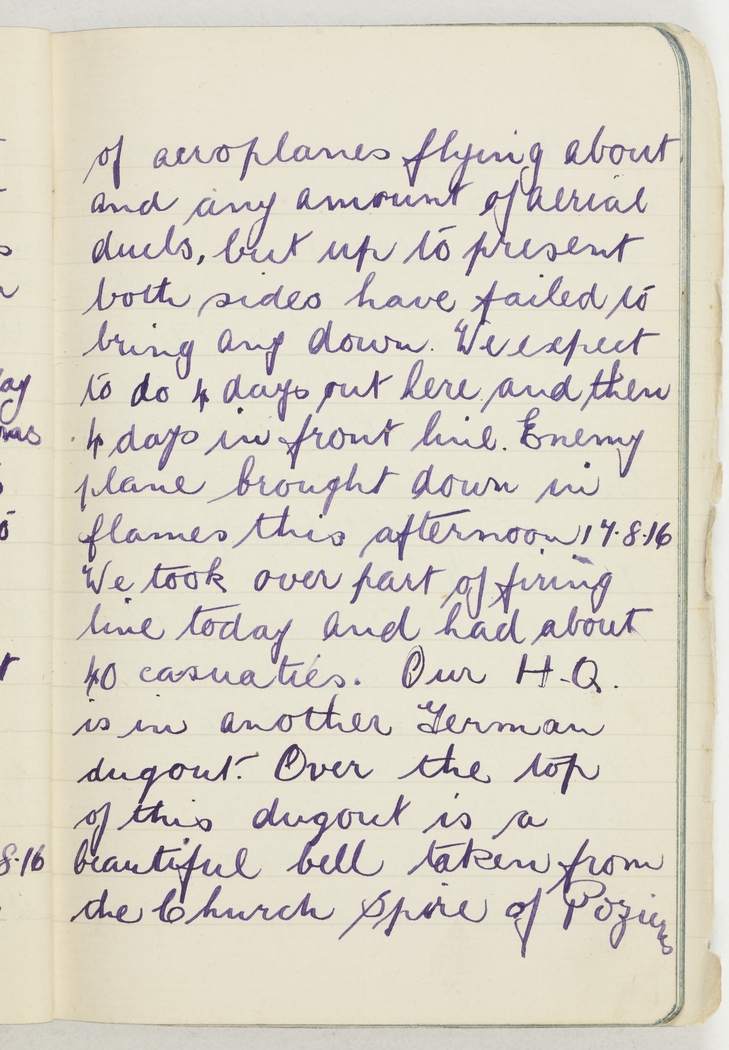 of aeroplanes flying about
and any amount of aerial
duels, but up to present
both sides have failed to
bring any down. We expect
to do 4 days out here and then
4 days in front line. Enemy
plane brought down in
flames this afternoon 17.8.16
We took over part of firing
line today and had about
40 casuaties. Our H.Q.
is in another German
dugout. Over the top
of this dugout is a
beautiful bell taken from
the Church Spire of Pozieres